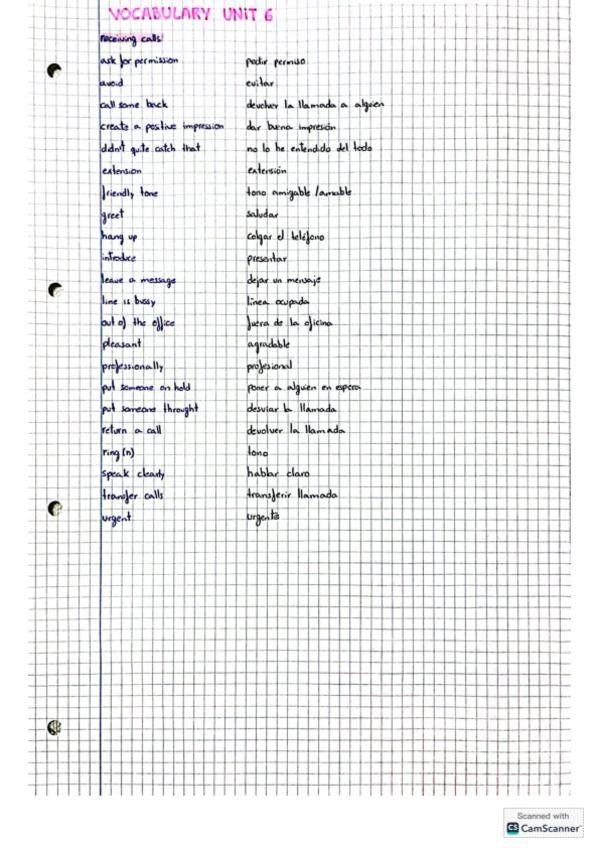 VOCABULARY UNIT 6
receiving calls
ask for permission pedir permiso
avoid evitar
call some back devolver la llamada a alguien
create a positive impression dar buena impresión
didn't quite catch that no lo he entendido del todo
extension extensión
friendly tone tono amigable /amable
greet saludar
hang up colgar el teléfono
introduce presentar
leave a message dejar un mensaje
line is bussy linea ocupada
out of the office fuera de la oficina
pleasant agradable
professionally profesional
put someone on hold poner a alguien en espera
put someone throught desviar la llamada
return a call devolver la llamada
ring (n) tono
speak clearly hablar claro
transfer calls transferir llamada
urgent urgente
Scanned with
CS CamScanner